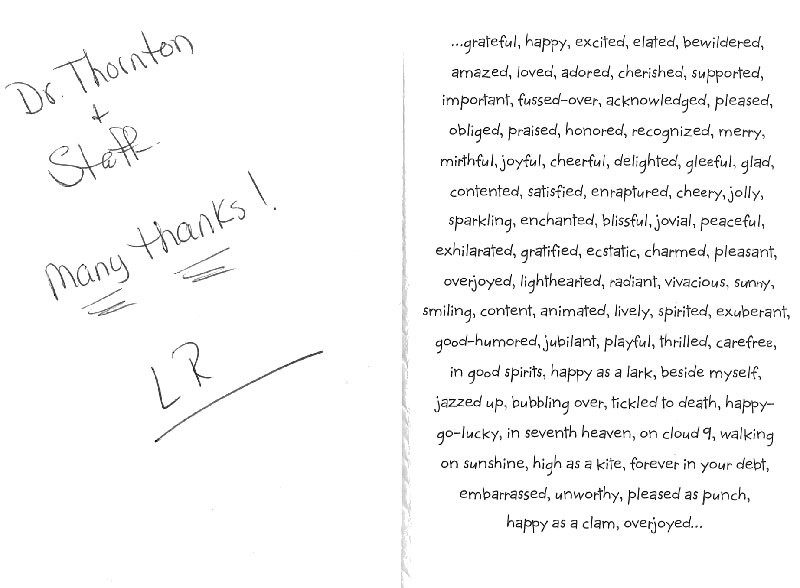 Dr. Thornton
+
Staff
Many thanks!
LR
...grateful, happy, excited, elated, bewildered,
amazed, loved, adored, cherished, supported,
important, fussed-over, acknowledged, pleased,
obliged, praised, honored, recognized, merry,
mirthful, joyful, cheerful, delighted, gleeful, glad,
contented, satisfied, enraptured, cheery, jolly,
sparkling, enchanted, blissful, jovial, peaceful,
exhilarated, gratified, ecstatic, charmed, pleasant,
overjoyed, lighthearted, radiant, vivacious, sunny,
smiling, content, animated, lively, spirited, exuberant,
good-humored, jubilant, playful, thrilled, carefree,
in good spirits, happy as a lark, beside myself,
jazzed up, bubbling over, tickled to death, happy-
go-lucky, in seventh heaven, on cloud 9, walking
on sunshine, high as a kite, forever in your debt,
embarrassed, unworthy, pleased as punch,
happy as a clam, overjoyed...